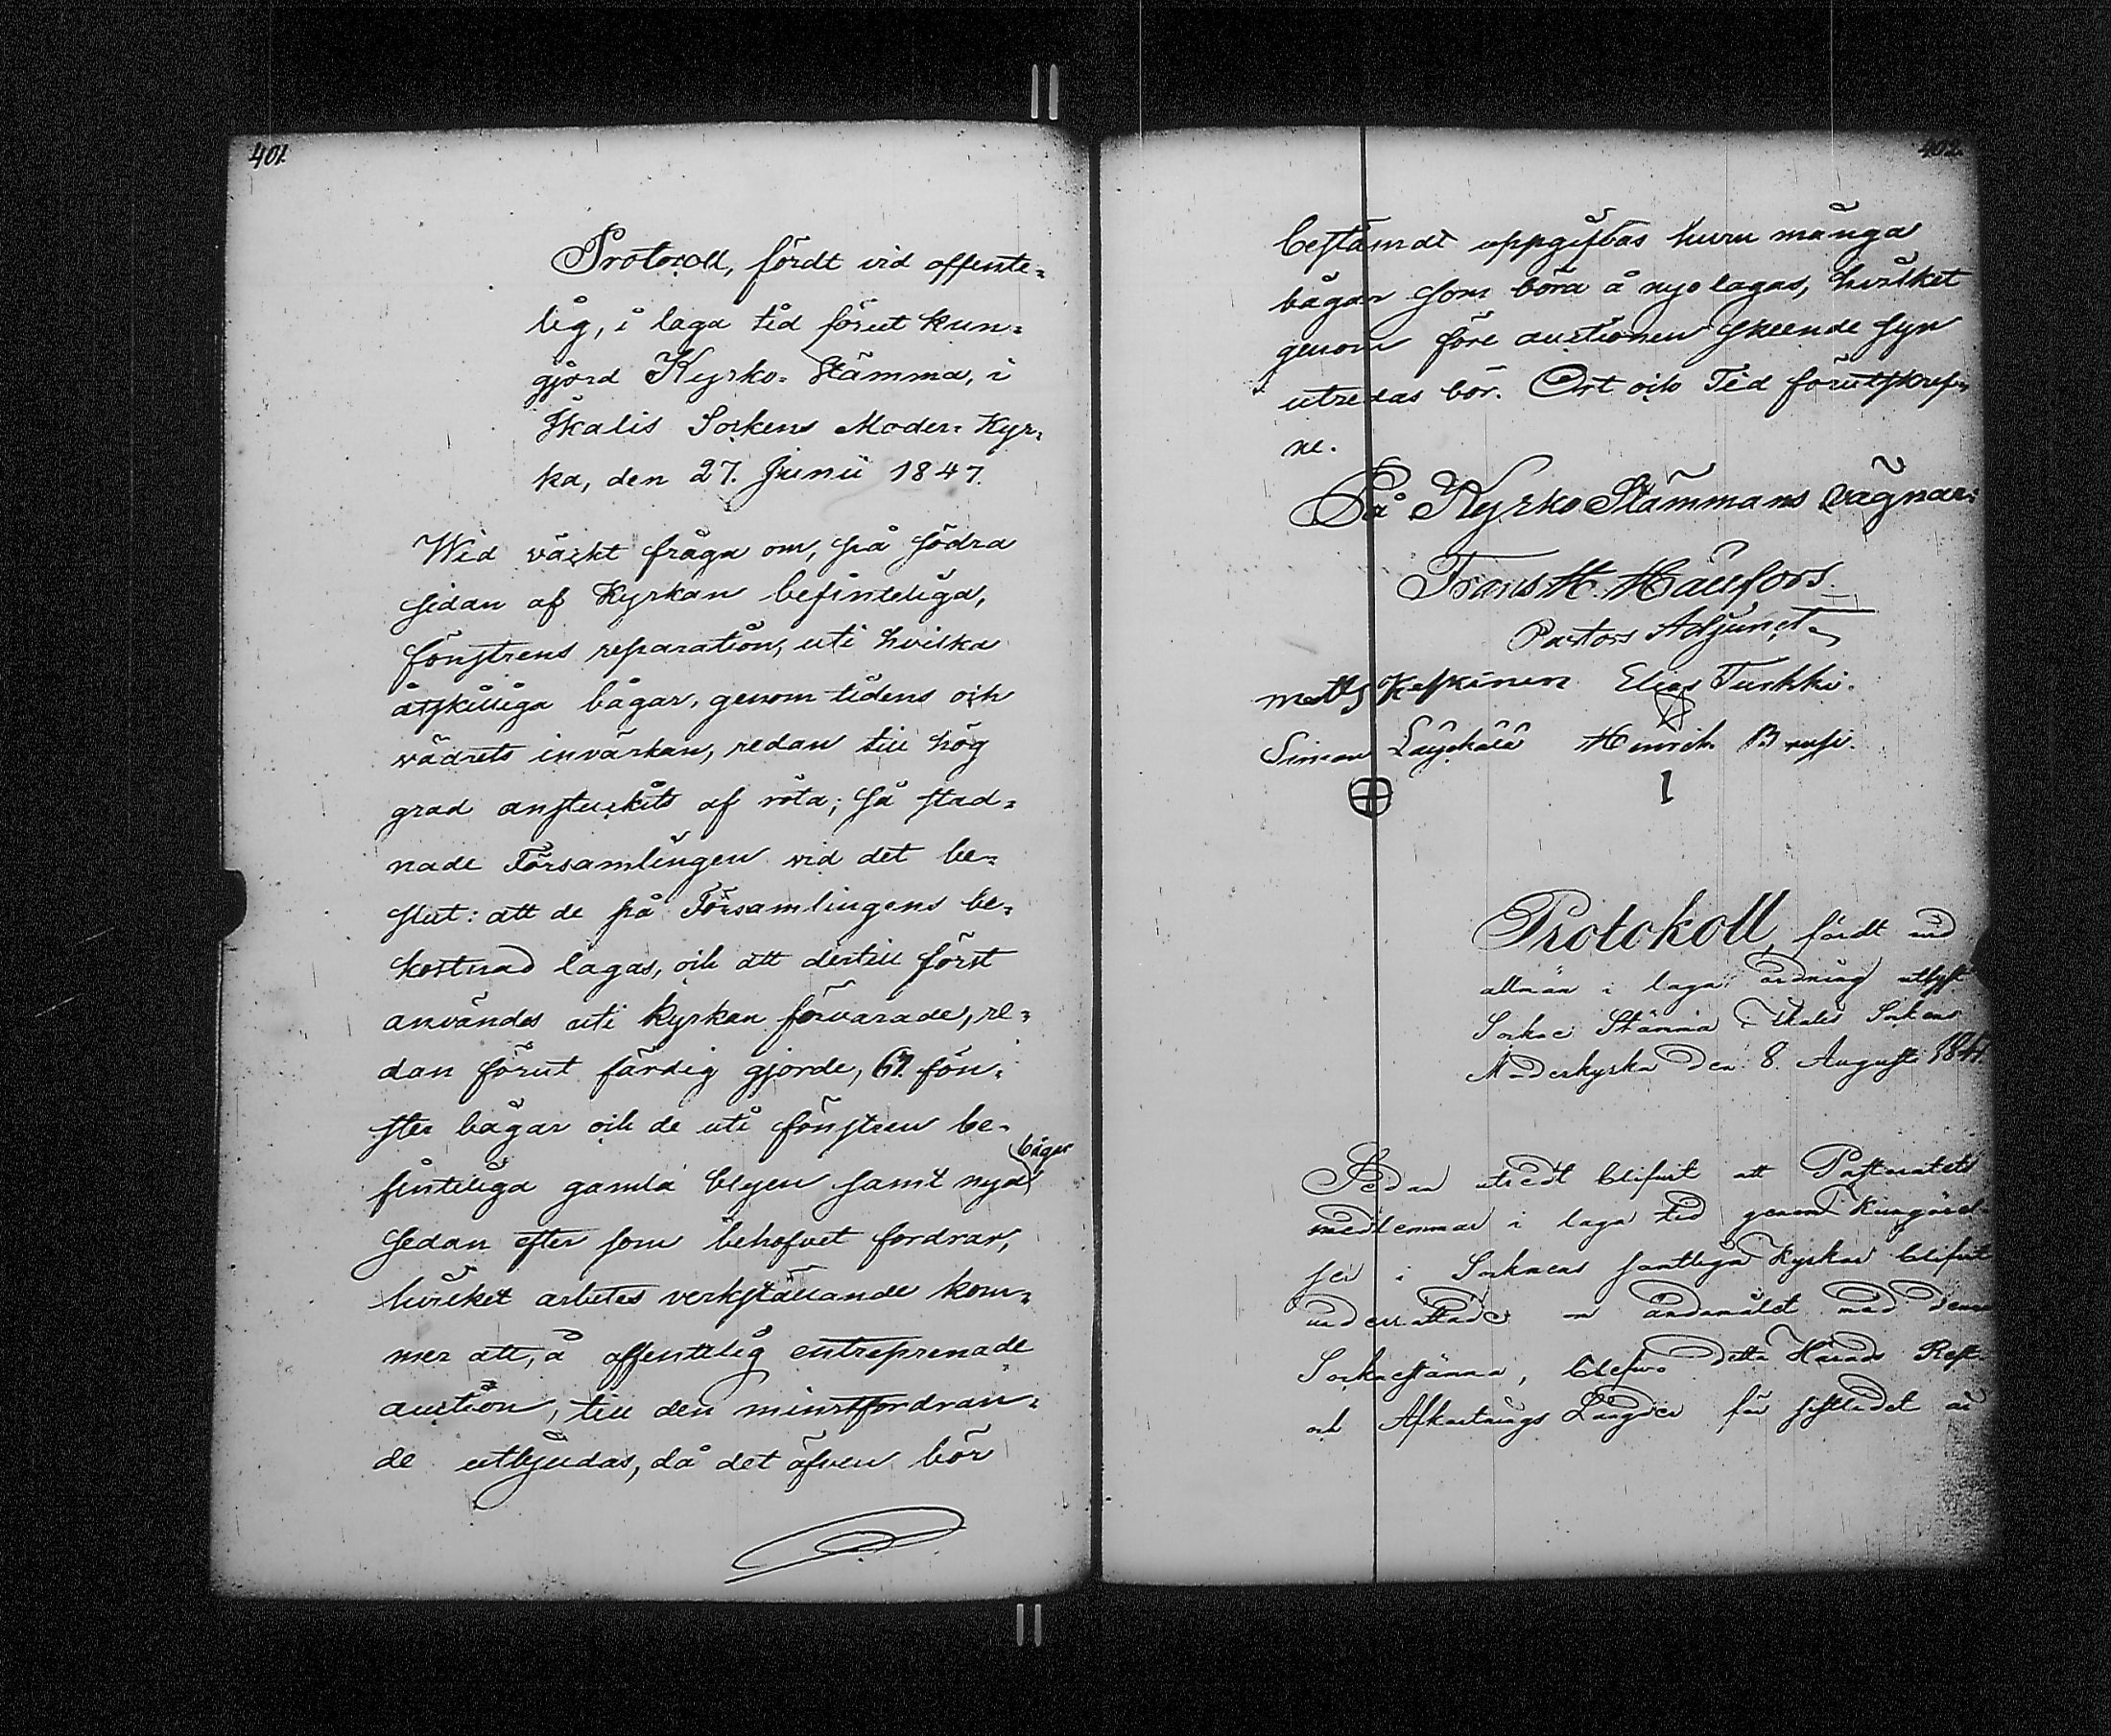 401.
Protocoll, fördt vid offente=
lig, i laga tid förut kun=
gjord Kyrko-Stämma, i
Ikalis Sockens Moder-Kyr=
ka, den 27. Junii 1847.
Wid väckt fråga om, på södra
sidan af Kyrkan befinteliga,
fönstrens reparation, uti hvilka
åtskilliga bågar, genom tidens och
vädrets invärkan, redan till hög
grad anstuckits af röta; så stad=
nade Församlingen vid det be=
slut: att de på Församlingens be=
kostnad lagas, och att dertill först
användes uti kyrkan förvarade, re=
dan förut färdig gjorde, 67. fön=
ster bågar och de uti fönstren be=
finteliga gamla blyen samt nya bågar
sedan efter som behofvet fordrar,
hvilket arbetes verkställande kom=
mer att, å offentelig entreprenade
auction, till den minstfordran=
de utbjudas, då det äfven bör
402.
bestämdt uppgifvas huru många
bågar som böra å nyo lagas, hvilket
genom före auctionen skeende syn
utredas bör. Ort och Tid förutskref=
ne.
På Kyrko Stämmans vägnar:
Frans H.
Pastors Adjunct.
Matts Keskinen Elias Turkki.
Simon Henrik
Protokoll, fördt vid
allmän i laga ordning utlyst
Sockne Stämma i Ikalis Sockens
Moderkyrka den 8. Augusti 1847.
Sedan utredt blifvit att Pastoratets
medlemmar i laga tid genom Kungörel=
ser i Socknens samtliga Kyrkor blifvit
underrättade om ändamålet med denna
Socknestämma, blefvo detta Härads Rest=
och Afkortnings Längder för sistledet år